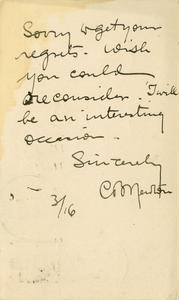 Sorry to get your
regrets. Wish
you could
reconsider. Twill
be an interesting
occasion.
Sincerely
CB Newton
3/16